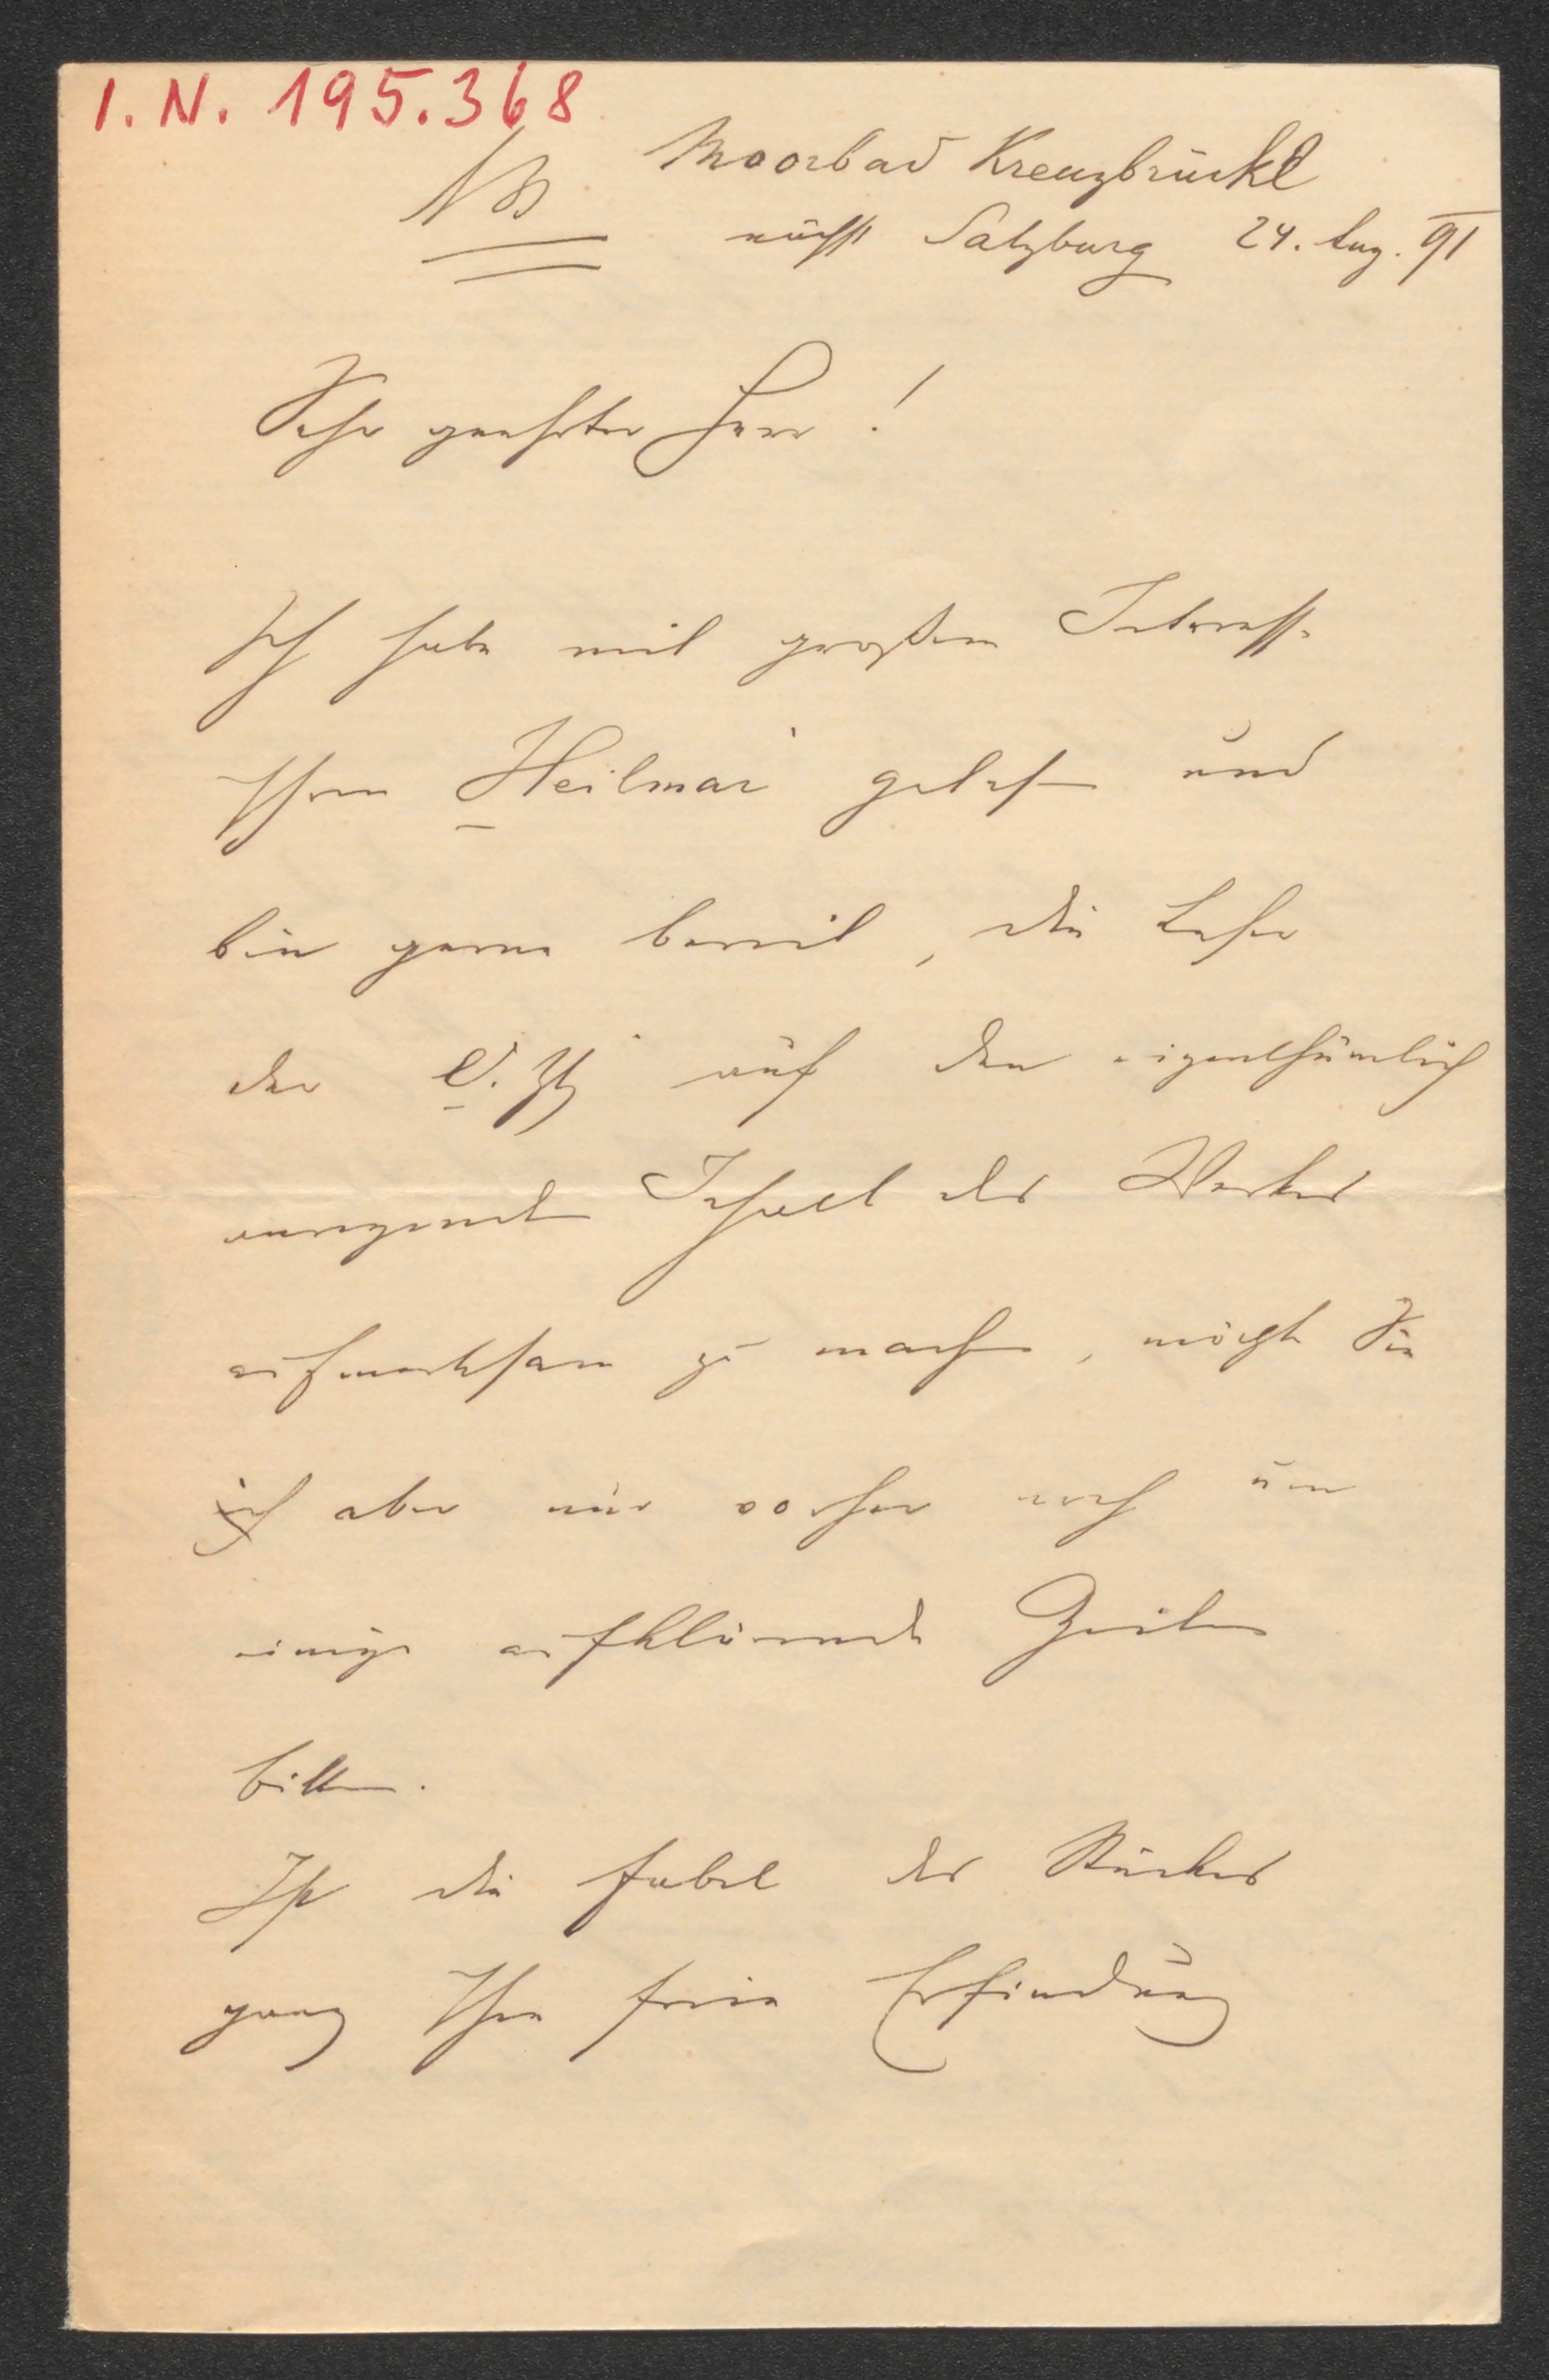 I. N. 195.368
NB Moorbad Kreuzbrückl
nächst Salzburg 24. Aug. 91
Sehr geehrter Herr!
Ich habe mit großem Interesse
Ihren „Heilmar“ gelesen und
bin gerne bereit, die Leser
der „D. Ztg“ auf den eigenthümlich
anregenden Inhalt des Werkes
aufmerksam zu machen, möchte Sie
ich aber nur vorher noch um
einige aufklärende Zeilen
bitten.
Ist die Fabel des Stückes
ganz Ihre freie Erfindung